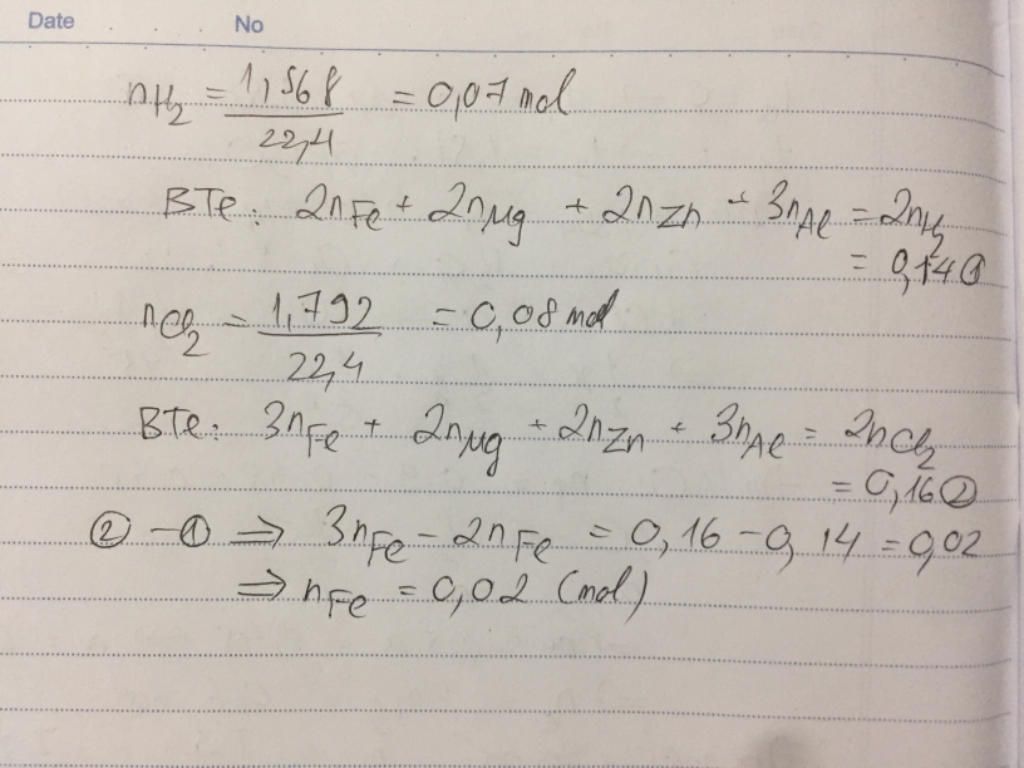 Date No
nH₂ = 1,568 / 22,4 = 0,07 mol
BTe: 2nFe + 2nMg + 2nZn + 3nAl = 2nH₂
= 0,14 ①
nCl₂ = 1,792 / 22,4 = 0,08 mol
BTe: 3nFe + 2nMg + 2nZn + 3nAl = 2nCl₂
= 0,16 ②
② - ① ⇒ 3nFe - 2nFe = 0,16 - 0,14 = 0,02
⇒ nFe = 0,02 (mol)